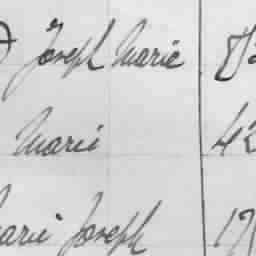 Joseph Marie
Marie 42
Marie Joseph 17